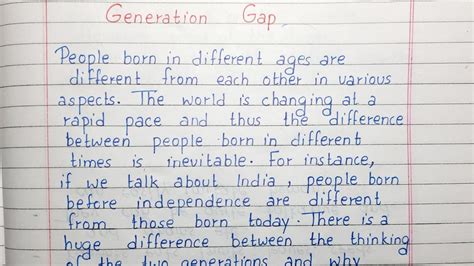 Generation Gap
People born in different ages are
different from each other in various
aspects. The world is changing at a
rapid pace and thus the difference
between people born in different
times is inevitable. For instance,
if we talk about India, people born
before independence are different
from those born today. There is a
huge difference between the thinking
of the two generations and why